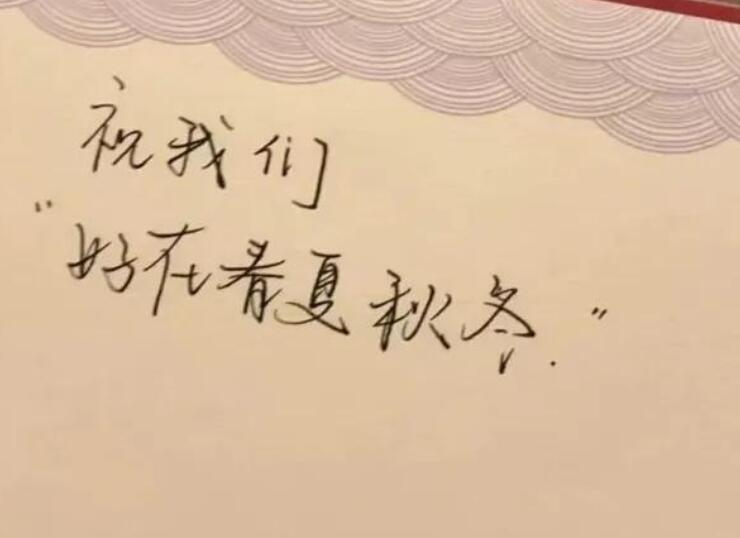 祝我们
"好在春夏秋冬."